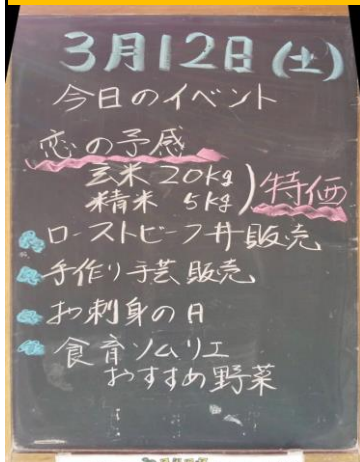 3月12日(土)
今日のイベント
恋の予感
玄米 20kg
精米 5kg)特価
ローストビーフ丼販売
手作り手芸販売
お刺身の日
食育ソムリエ
おすすめ野菜